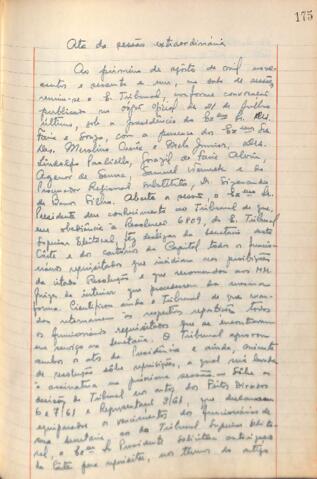 175
Ata da sessão extraordinária
Ao primeiro de agosto de mil nove-
centos e sessenta e um, na sala de sessões,
reuniu-se o E. Tribunal, conforme convocação
publicada no órgão oficial de 21 de julho
último, sob a presidência do Exmo Sr. Des.
Faria e Souza, com a presença dos Exmos Srs.
Des. Merolino Corrêa e Melo Junior, drs.
Lindolfo Paoliello,
Agenor de Senna, Samuel e do
Procurador Regional substituto, Dr.
de Barros Filho. Aberta a sessão, o Exmo Sr.
Presidente deu conhecimento ao Tribunal de que,
em obediência à Resolução 6909, do E. Tribunal
Superior Eleitoral, fez desligar da secretaria desta
Côrte e do cartório da Capital todos os funcio-
nários requisitados que incidiam nas proibições
da citada Resolução e que recomendou aos MM.
Juizes do interior que procedessem da mesma
forma. Cientificou ainda o Tribunal de que
dos retornarem às respectivas repartições todos
os funcionários requisitados que se encontravam
em serviço na Secretaria. O Tribunal aprovou
ambos os atos da Presidência e ainda,
de resolução sôbre requisição, a qual será levada
à assinatura na próxima sessão. Sôbre a
decisão do Tribunal nos autos dos Feitos Diversos
6 e 7/61 e Representação 3/61, que
equiparados os vencimentos dos funcionários de
sua secretaria ao do Tribunal Superior Eleito-
ral, o Exmo Sr. Presidente solicitou autorização
da Côrte para aposentar, nos termos do artigo